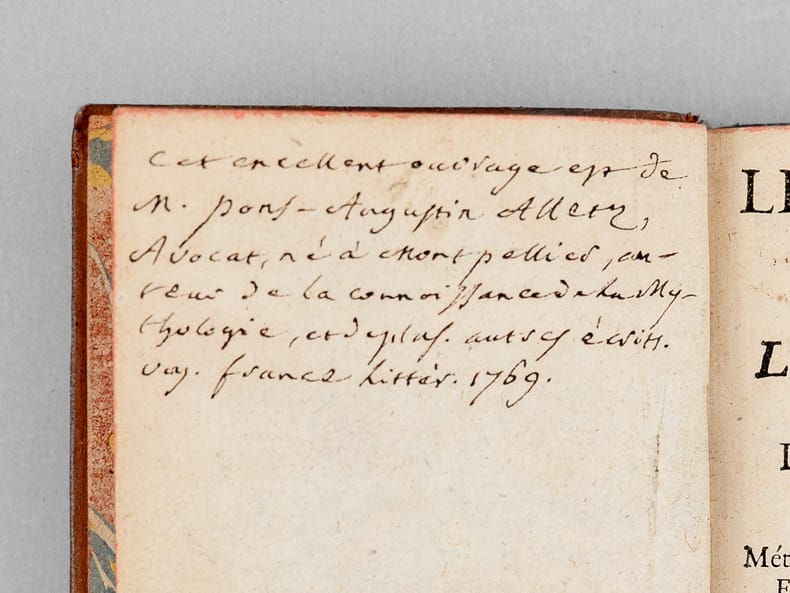 Cet excellent ouvrage est de
M. pons-Augustin Alletz,
Avocat, né à Montpellier, au-
teur de la connoissance de la My-
thologie, et de plus. autres écrits.
voy. france littér. 1769.
LE
L
Mét